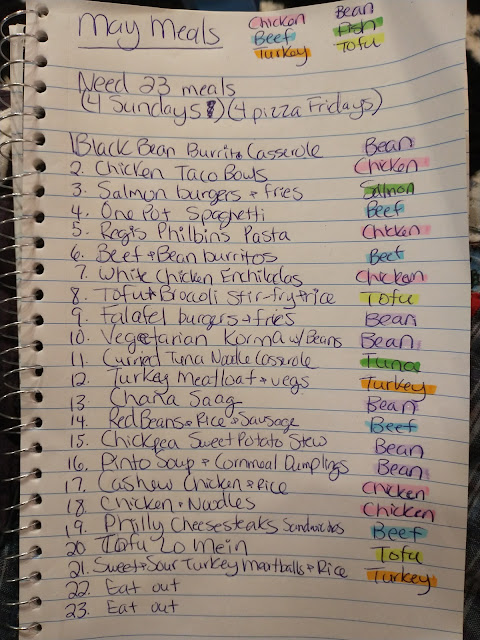 May Meals
Chicken Bean
Beef Fish
Turkey Tofu
Need 23 meals
(4 Sundays) (4 pizza Fridays)
1. Black Bean Burrito Casserole Bean
2. Chicken Taco Bowls Chicken
3. Salmon burgers + fries Salmon
4. One Pot Spaghetti Beef
5. Regis Philbin's Pasta Chicken
6. Beef + Bean burritos Beef
7. White Chicken Enchiladas Chicken
8. Tofu + Broccoli Stir-fry + rice Tofu
9. Falafel burgers + fries Bean
10. Vegetarian Korma w/ Beans Bean
11. Curried Tuna Noodle Casserole Tuna
12. Turkey Meatloaf + vegs Turkey
13. Chana Saag Bean
14. Red Beans + Rice + Sausage Beef
15. Chickpea Sweet Potato Stew Bean
16. Pinto Soup + Cornmeal Dumplings Bean
17. Cashew Chicken + Rice Chicken
18. Chicken + Noodles Chicken
19. Philly Cheesesteaks Sandwiches Beef
20 Tofu Lo Mein Tofu
21. Sweet + Sour Turkey Meatballs + Rice Turkey
22. Eat out
23. Eat out